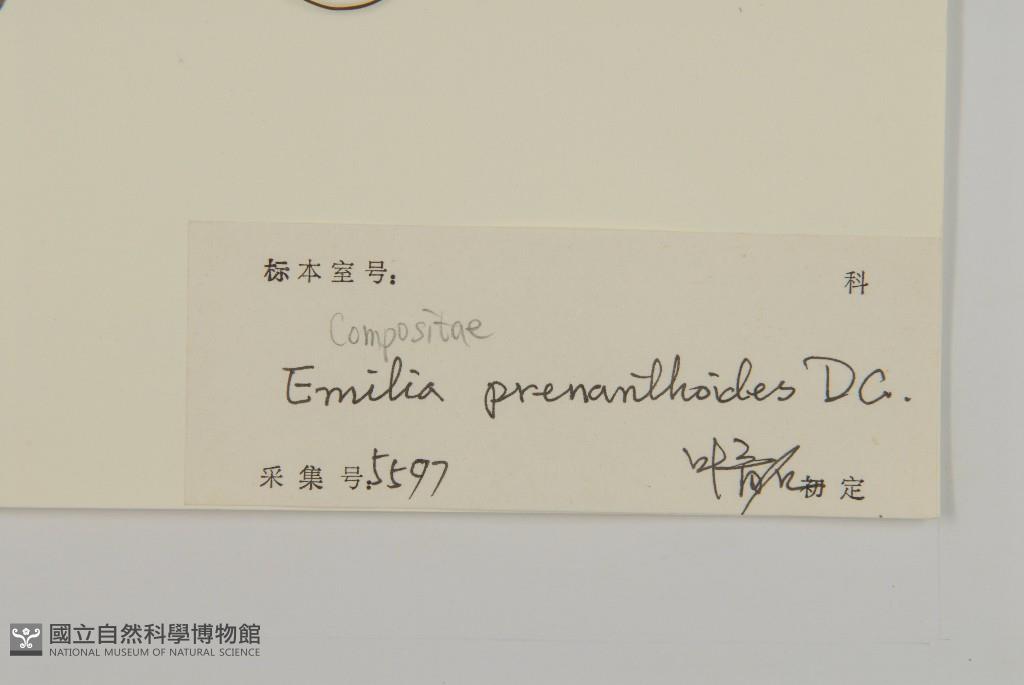 标本室号: 科
Compositae
Emilia prenanthoides DC.
采集号: 5597 叶 初定
國立自然科學博物館
NATIONAL MUSEUM OF NATURAL SCIENCE